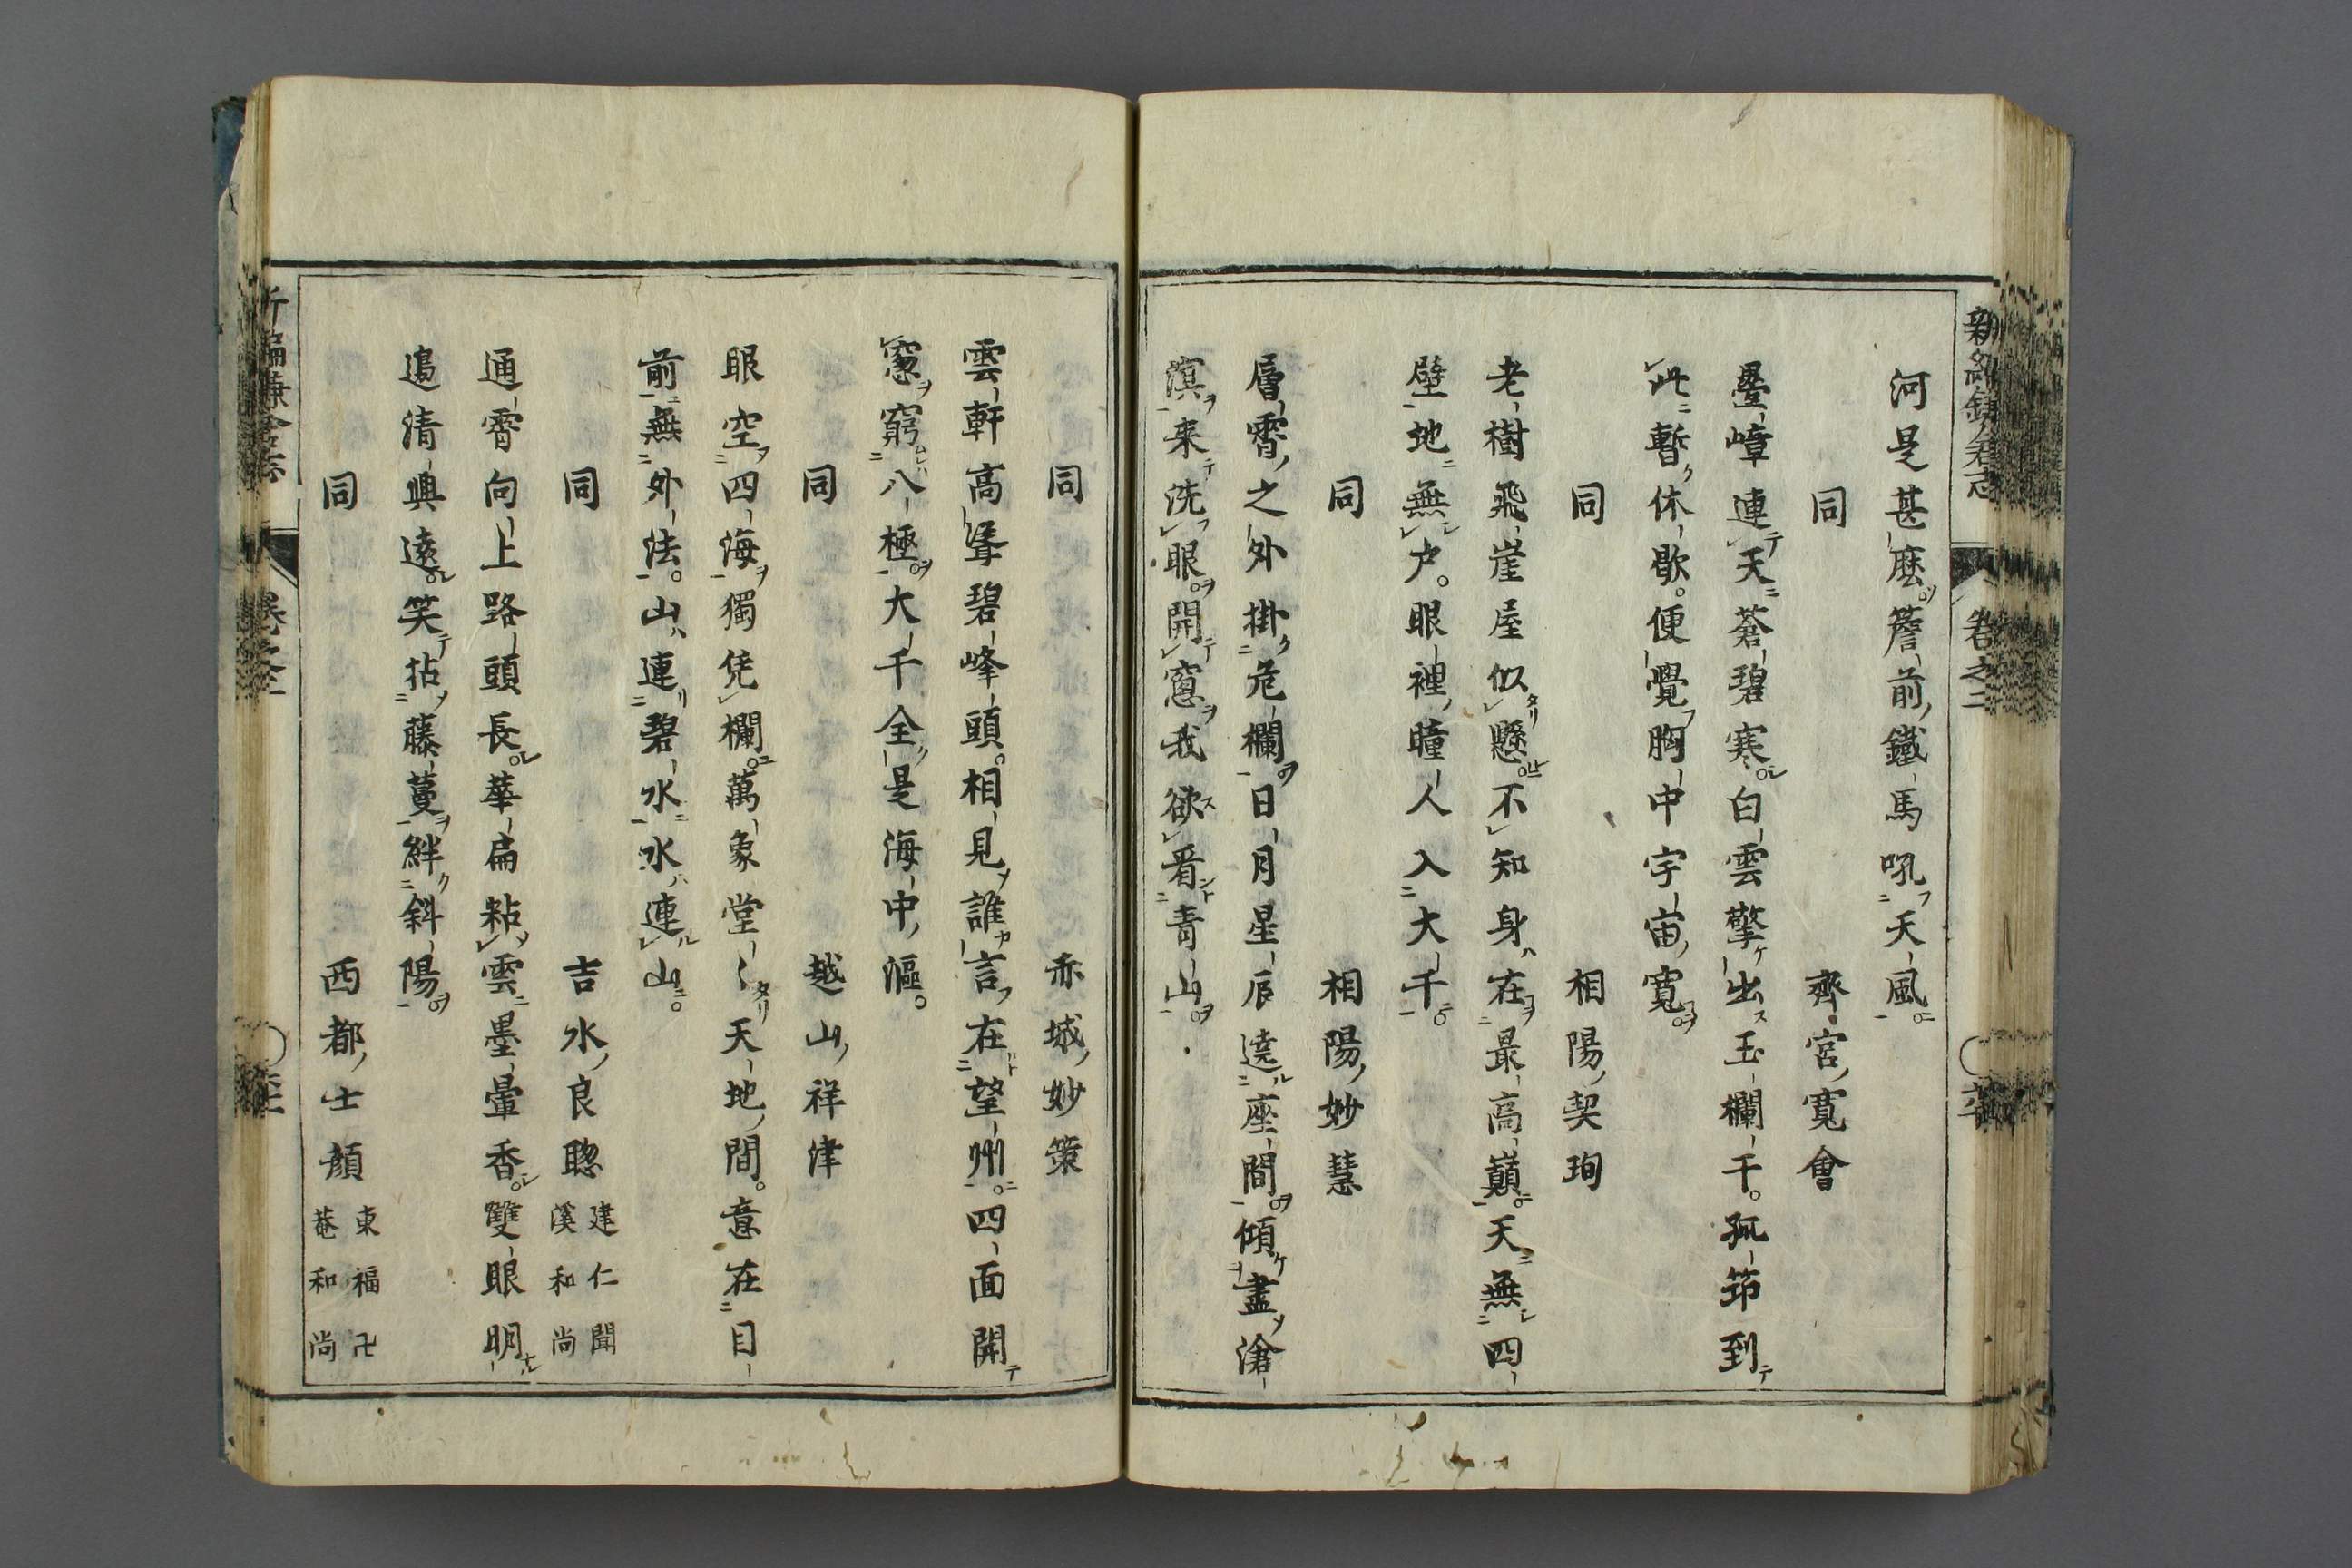 河是甚麼簷前鐵馬吼天風
同 齊宮寬會
疊嶂連天蒼碧寒白雲擎出玉欄干孤筇到
此暫休歇便覺胸中宇宙寬
同 相陽契珣
老樹飛崖屋似懸不知身在最高巔天無四
壁地無戶眼裡瞳人入大千
同 相陽妙慧
層霄之外掛危欄日月星辰遶座間傾盡滄
溟来洗眼開窓我欲看青山
同 赤城妙策
雲軒高聳碧峰頭相見誰言在望州四面開
窓窮八極大千全是海中漚
同 越山祥津
眼空四海獨凭欄萬象堂〻天地間意在目
前無外法山連碧水水連山
同 吉水良聦 建仁聞溪和尚
通霄向上路頭長華扁粘雲墨暈香雙眼明
邉清興遠笑拈藤蔓絆斜陽
同 西都士顏 東福卍菴和尚